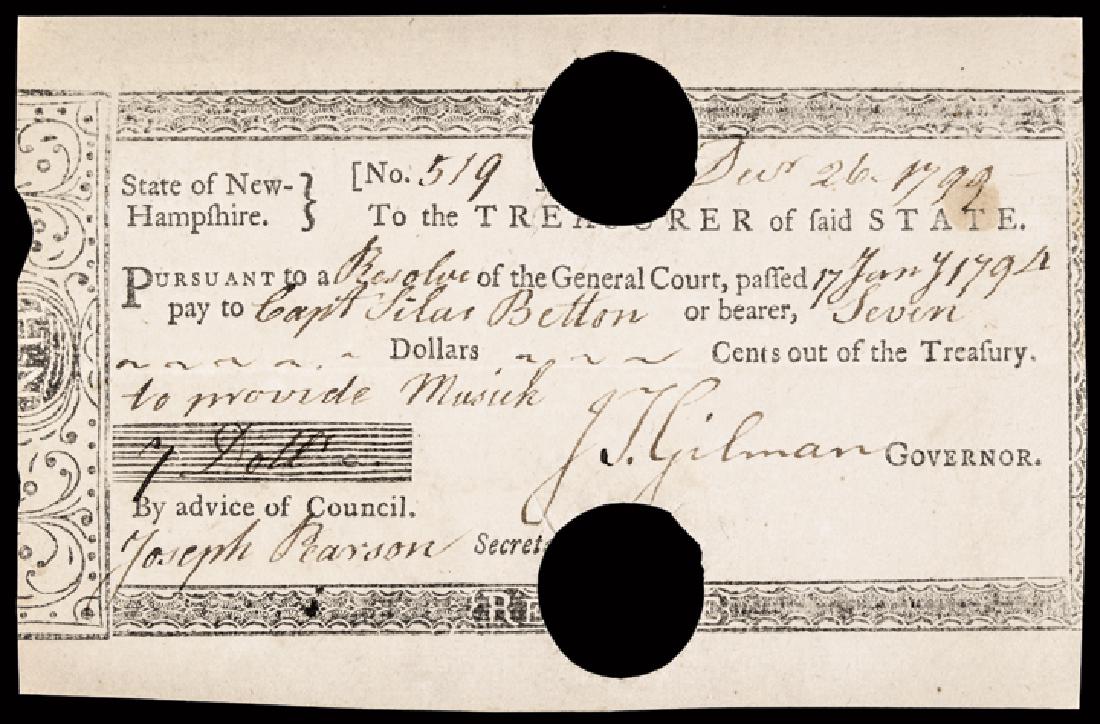 State of New-
Hampſhire.
[No. 519 ] Decr 26. 1799
To the TREASURER of ſaid STATE.
PURSUANT to a Resolve of the General Court, paſſed 17 Jany 1794
pay to Capt Silas Betton or bearer, Seven
Dollars Cents out of the Treaſury.
to provide Musick
7 Dolls
J T Gilman GOVERNOR.
By advice of Council.
Joseph Pearson Secret